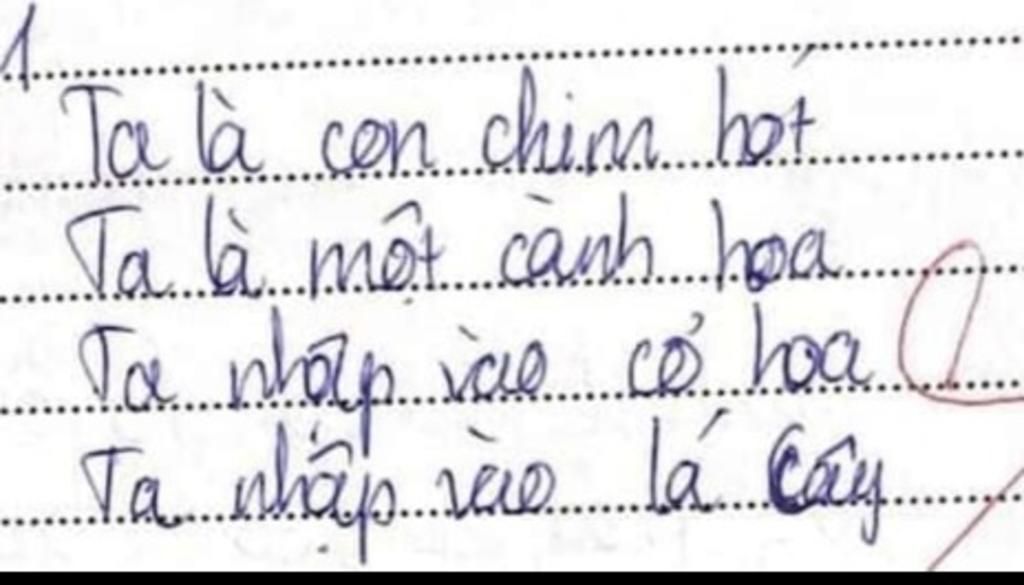 1
Ta là con chim hót
Ta là một cành hoa
Ta nhập vào cỏ hoa
Ta nhập vào lá cây